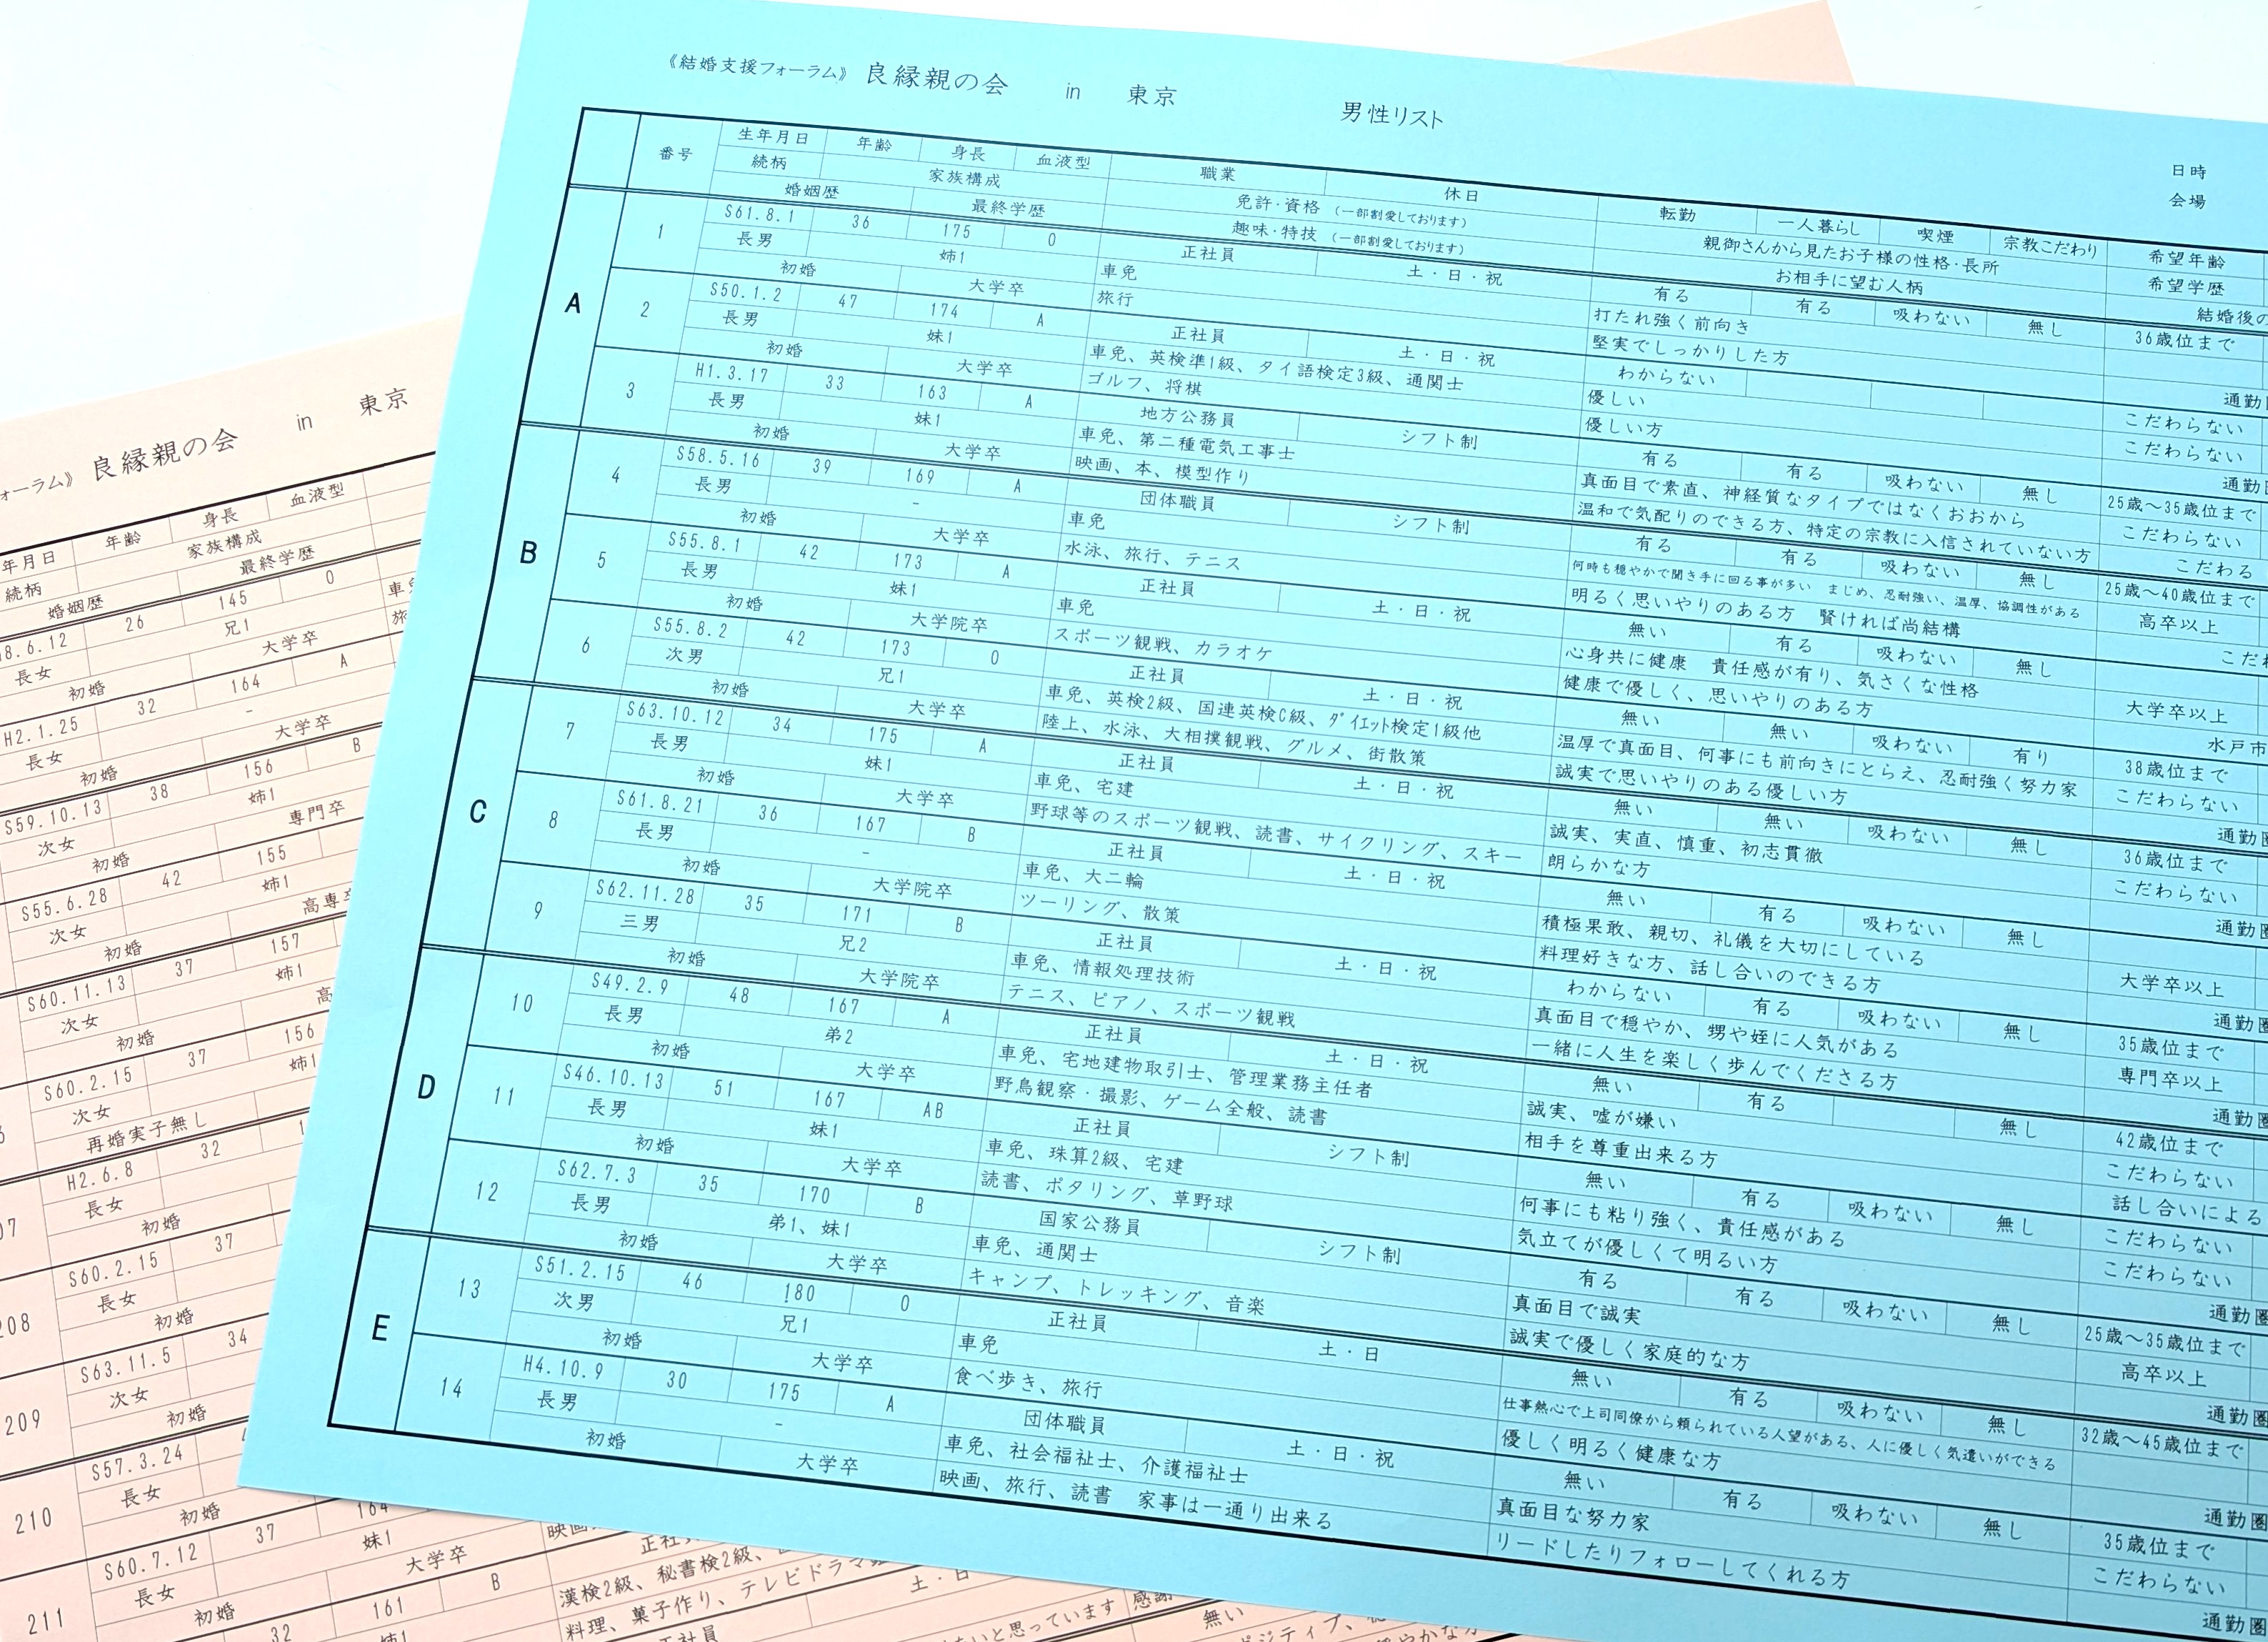 《結婚支援フォーラム》 良縁親の会 in 東京 男性リスト
日時
会場
番号 生年月日 年齢 身長 血液型 職業 休日 転勤 一人暮らし 喫煙 宗教こだわり 希望年齢
続柄 家族構成 免許・資格 (一部割愛しております) 親御さんから見たお子様の性格・長所 希望学歴
婚姻歴 最終学歴 趣味・特技 (一部割愛しております) お相手に望む人柄 結婚後の
A
1 S61.8.1 36 175 O 正社員 土・日・祝 有る 有る 吸わない 無し 36歳位まで
長男 姉1 車免 打たれ強く前向き
初婚 大学卒 旅行 堅実でしっかりした方 通勤
2 S50.1.2 47 174 A 正社員 土・日・祝 わからない こだわらない
長男 妹1 車免、英検準1級、タイ語検定3級、通関士 優しい こだわらない
初婚 大学卒 ゴルフ、将棋 優しい方 通勤
3 H1.3.17 33 163 A 地方公務員 シフト制 有る 有る 吸わない 無し 25歳〜35歳位まで
長男 妹1 車免、第二種電気工事士 真面目で素直、神経質なタイプではなくおおから こだわらない
初婚 大学卒 映画、本、模型作り 温和で気配りのできる方、特定の宗教に入信されていない方 こだわる
B
4 S58.5.16 39 169 A 団体職員 シフト制 有る 有る 吸わない 無し 25歳〜40歳位まで
長男 - 車免 何時も穏やかで聞き手に回る事が多い まじめ、忍耐強い、温厚、協調性がある 高卒以上
初婚 大学卒 水泳、旅行、テニス 明るく思いやりのある方 賢ければ尚結構 こだ
5 S55.8.1 42 173 A 正社員 土・日・祝 無い 有る 吸わない 無し
長男 妹1 車免 心身共に健康 責任感が有り、気さくな性格 大学卒以上
初婚 大学院卒 スポーツ観戦、カラオケ 健康で優しく、思いやりのある方 水戸市
6 S55.8.2 42 173 O 正社員 土・日・祝 無い 無い 吸わない 有り 38歳位まで
次男 兄1 車免、英検2級、国連英検C級、ダイエット検定1級他 温厚で真面目、何事にも前向きにとらえ、忍耐強く努力家 こだわらない
初婚 大学卒 陸上、水泳、大相撲観戦、グルメ、街散策 誠実で思いやりのある優しい方 通勤圏
C
7 S63.10.12 34 175 A 正社員 土・日・祝 無い 無い 吸わない 無し 36歳位まで
長男 妹1 車免、宅建 誠実、実直、慎重、初志貫徹 こだわらない
初婚 大学卒 野球等のスポーツ観戦、読書、サイクリング、スキー 朗らかな方 通勤圏
8 S61.8.21 36 167 B 正社員 土・日・祝 無い 有る 吸わない 無し
長男 - 車免、大二輪 積極果敢、親切、礼儀を大切にしている 大学卒以上
初婚 大学院卒 ツーリング、散策 料理好きな方、話し合いのできる方 通勤圏
9 S62.11.28 35 171 B 正社員 土・日・祝 わからない 有る 吸わない 無し 35歳位まで
三男 兄2 車免、情報処理技術 真面目で穏やか、甥や姪に人気がある 専門卒以上
初婚 大学院卒 テニス、ピアノ、スポーツ観戦 一緒に人生を楽しく歩んでくださる方 通勤圏
D
10 S49.2.9 48 167 A 正社員 土・日・祝 無い 有る 無し 42歳位まで
長男 弟2 車免、宅地建物取引士、管理業務主任者 誠実、嘘が嫌い こだわらない
初婚 大学卒 野鳥観察・撮影、ゲーム全般、読書 相手を尊重出来る方 話し合いによる
11 S46.10.13 51 167 AB 正社員 シフト制 無い 有る 吸わない 無し こだわらない
長男 妹1 車免、珠算2級、宅建 何事にも粘り強く、責任感がある こだわらない
初婚 大学卒 読書、ポタリング、草野球 気立てが優しくて明るい方 通勤圏
12 S62.7.3 35 170 B 国家公務員 シフト制 有る 有る 吸わない 無し 25歳〜35歳位まで
長男 弟1、妹1 車免、通関士 真面目で誠実 高卒以上
初婚 大学卒 キャンプ、トレッキング、音楽 誠実で優しく家庭的な方 通勤圏
E
13 S51.2.15 46 180 O 正社員 土・日 無い 有る 吸わない 無し 32歳〜45歳位まで
次男 兄1 車免 仕事熱心で上司同僚から頼られている人望がある、人に優しく気遣いができる
初婚 大学卒 食べ歩き、旅行 優しく明るく健康な方 通勤圏
14 H4.10.9 30 175 A 団体職員 土・日・祝 無い 有る 吸わない 無し 35歳位まで
長男 - 車免、社会福祉士、介護福祉士 真面目な努力家 こだわらない
初婚 大学卒 映画、旅行、読書 家事は一通り出来る リードしたりフォローしてくれる方 通勤圏
ォーラム》 良縁親の会 in 東京
年月日 年齢 身長 血液型
続柄 家族構成
婚姻歴 最終学歴
8.6.12 26 145 O
長女 兄1 車免
初婚 大学卒 旅
H2.1.25 32 164 A
長女 -
初婚 大学卒
S59.10.13 38 156 B
次女 姉1
初婚 専門卒
S55.6.28 42 155
次女 姉1
初婚 高専卒
S60.11.13 37 157
次女 姉1
初婚 高
S60.2.15 37 156
次女 姉1
再婚実子無し
07 H2.6.8 32
長女
初婚
208 S60.2.15 37
長女
初婚
209 S63.11.5 34
次女
初婚
210 S57.3.24
長女
初婚 映画
211 S60.7.12 37 164 正社
長女 妹1 漢検2級、秘書検2級、
初婚 大学卒 料理、菓子作り、テレビドラマ
32 161 B 正社員 土・日
姉1
いと思っています 感謝
無い